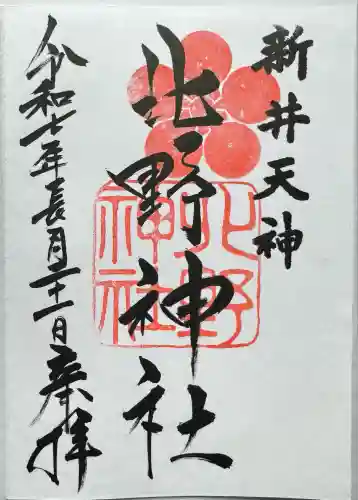 新井天神
北野神社
令和七年長月二十一日奉拝
北野
神社